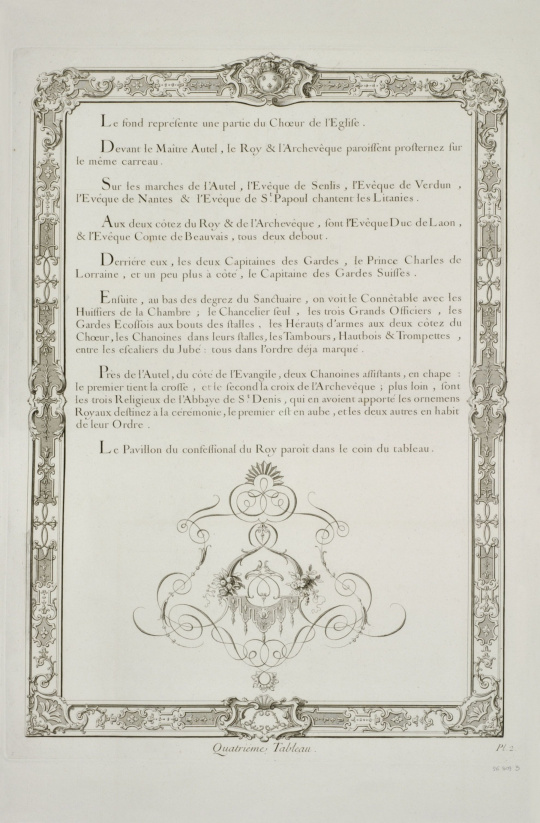 Le fond repréſente une partie du Chœur de l'Egliſe.
Devant le Maître Autel, le Roy & l'Archevêque paroiſſent proſternez ſur
le même carreau.
Sur les marches de l'Autel, l'Evêque de Senlis, l'Evêque de Verdun,
l'Evêque de Nantes & l'Evêque de St. Papoul chantent les Litanies.
Aux deux côtez du Roy & de l'Archevêque, ſont l'Evêque Duc de Laon,
& l'Evêque Comte de Beauvais, tous deux debout.
Derriére eux, les deux Capitaines des Gardes, le Prince Charles de
Lorraine, et un peu plus à côté, le Capitaine des Gardes Suiſſes.
Enſuite, au bas des degrez du Sanctuaire, on voit le Connétable avec les
Huiſſiers de la Chambre; le Chancelier ſeul, les trois Grands Officiers, les
Gardes Ecoſſois aux bouts des ſtalles, les Hérauts d'armes aux deux côtez du
Chœur, les Chanoines dans leurs ſtalles, les Tambours, Hautbois & Trompettes,
entre les eſcaliers du Jubé: tous dans l'ordre déja marqué.
Près de l'Autel, du côté de l'Evangile, deux Chanoines aſſiſtans, en chape:
le premier tient la croſſe, et le ſecond la croix de l'Archevêque; plus loin, ſont
les trois Religieux de l'Abbaye de St. Denis, qui en avoient apporté les ornemens
Royaux deſtinez a la cérémonie, le premier eſt en aube, et les deux autres en habit
de leur Ordre.
Le Pavillon du confeſſional du Roy paroît dans le coin du tableau.
Quatrieme Tableau.
Pl. 2.